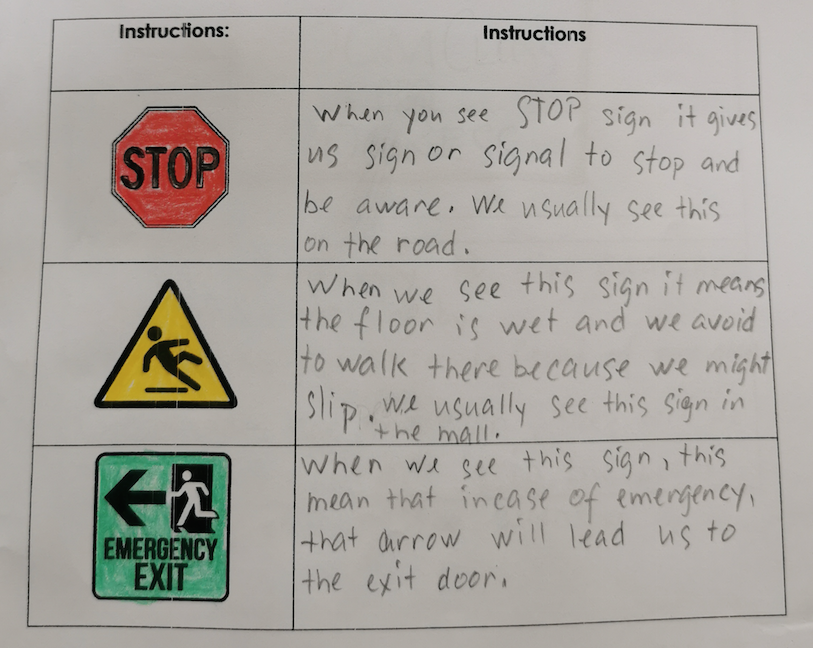 Instructions:
Instructions
STOP
When you see STOP sign it gives
us sign or signal to stop and
be aware. We usually see this
on the road.
When we see this sign it means
the floor is wet and we avoid
to walk there because we might
slip. we usually see this sign in
the mall.
EMERGENCY
EXIT
When we see this sign, this
mean that incase of emergency,
that arrow will lead us to
the exit door.